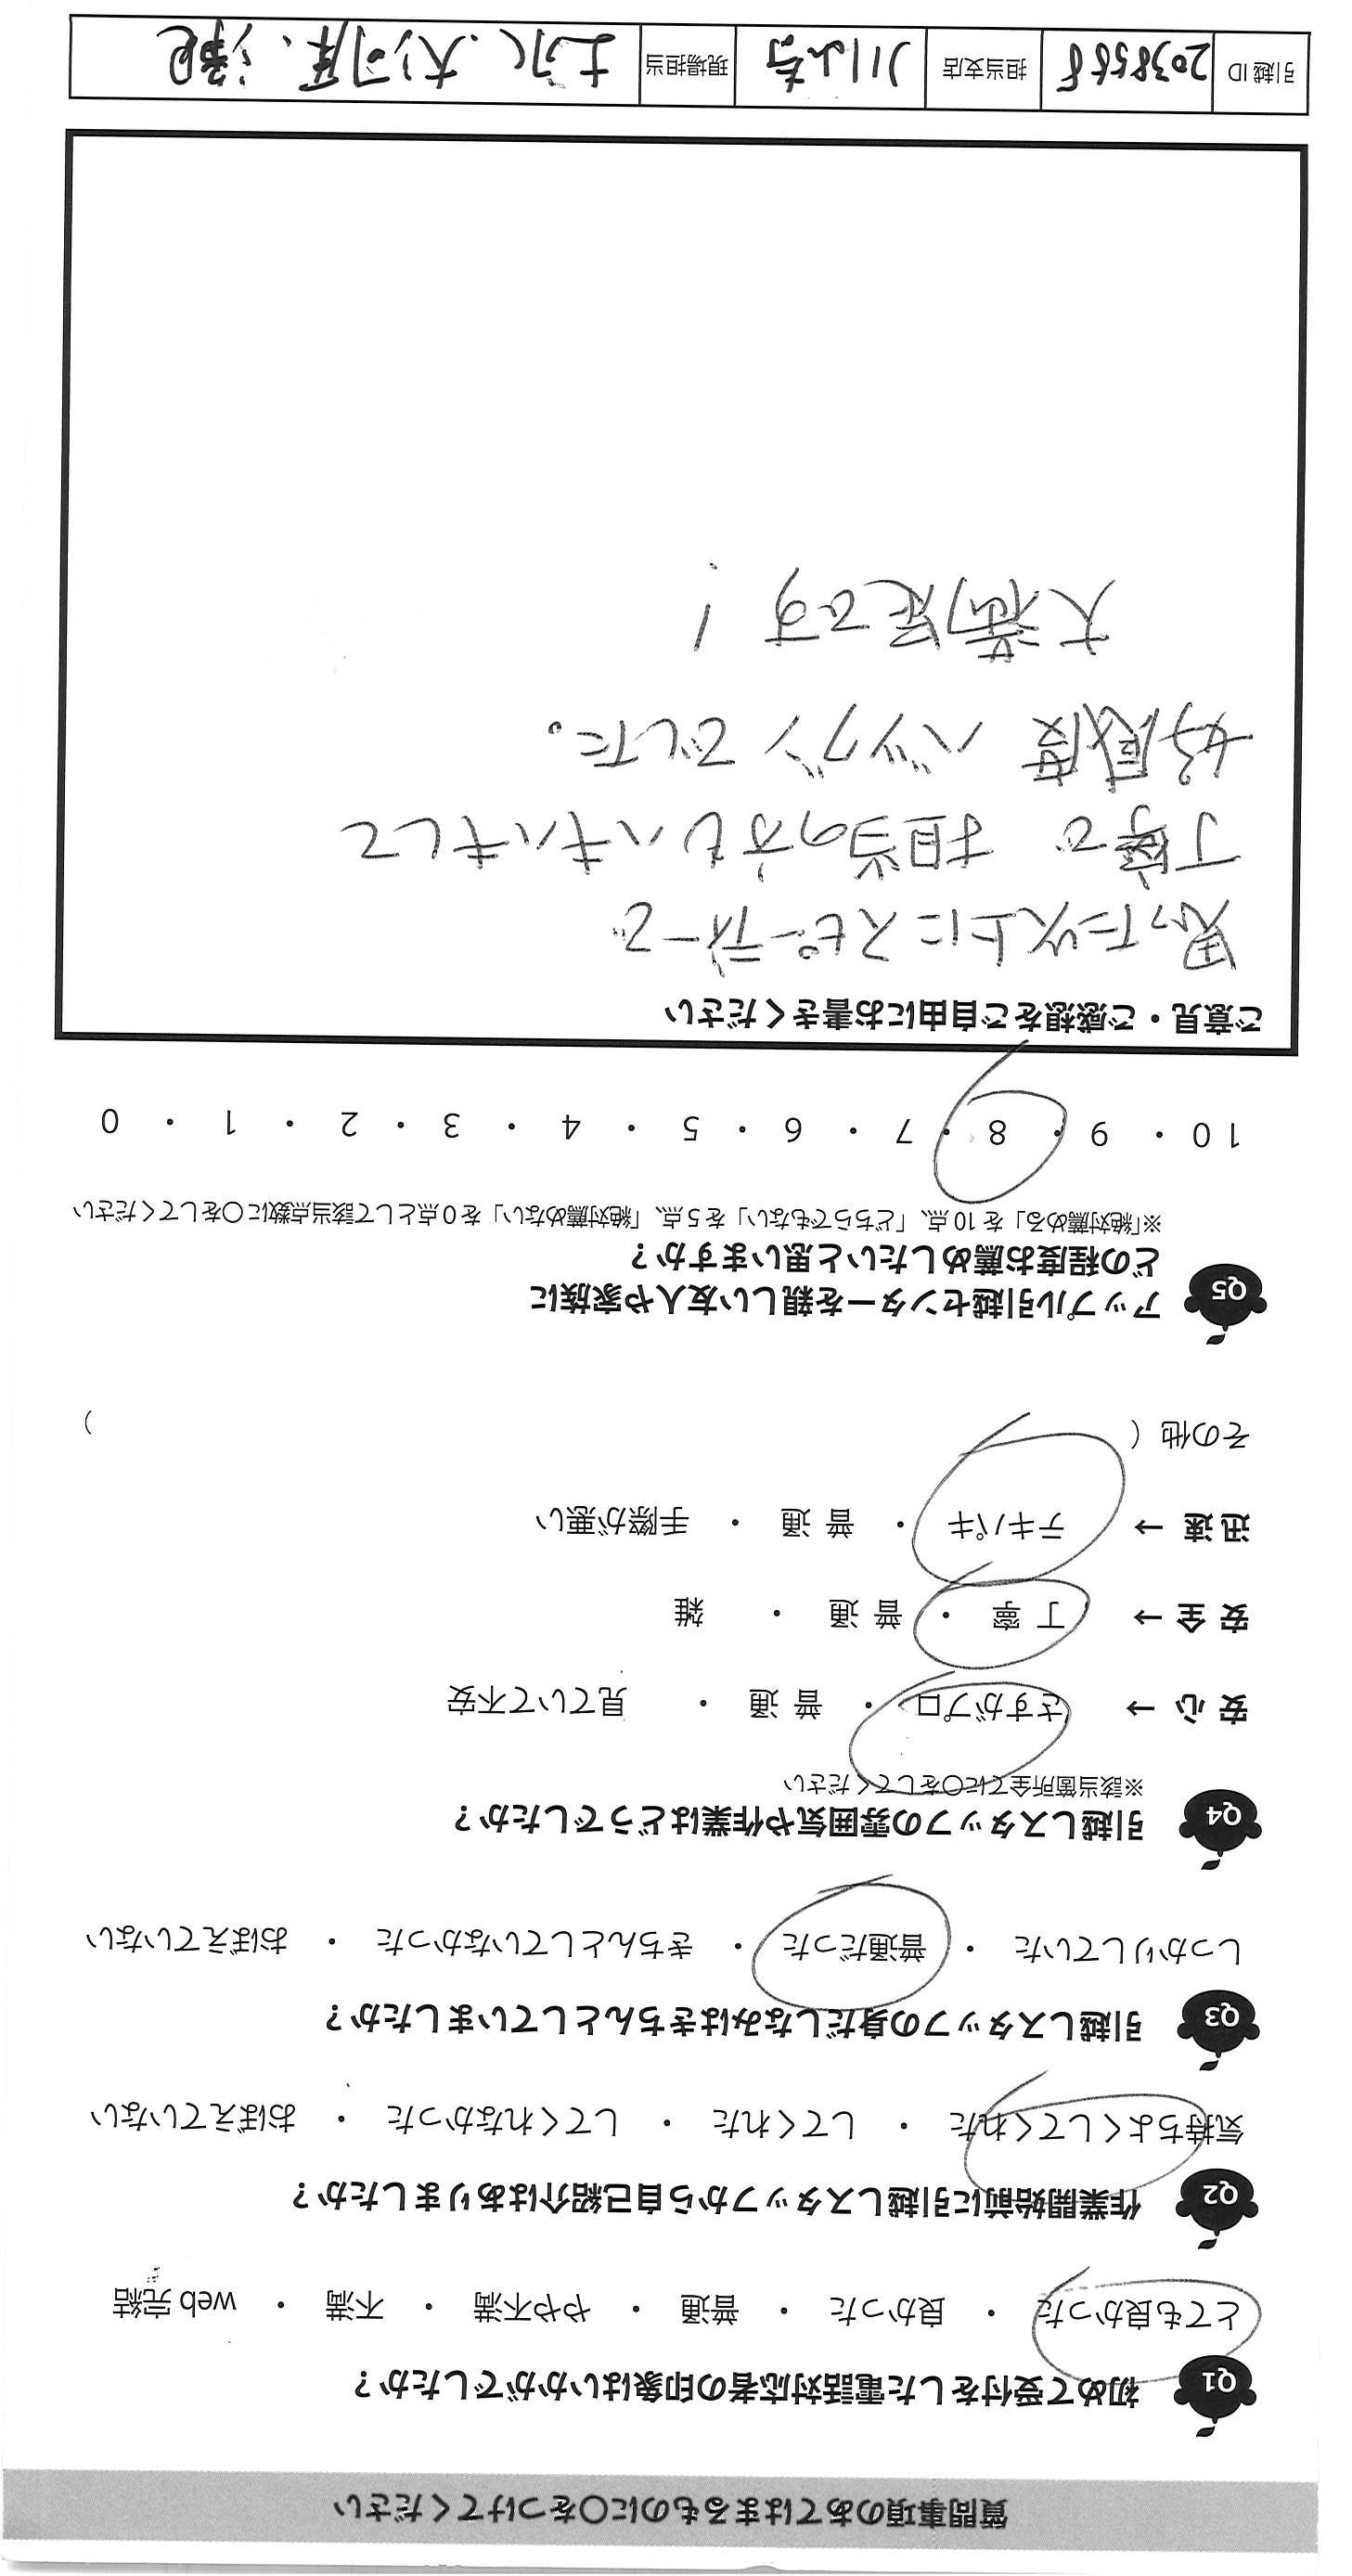 質問事項のあてはまるものに〇をつけてください
Q1 初めて受付をした電話対応者の印象はいかがでしたか？
とても良かった ・ 良かった ・ 普通 ・ やや不満 ・ 不満 ・ web 完結
Q2 作業開始前に引越しスタッフから自己紹介はありましたか？
気持ちよくしてくれた ・ してくれた ・ してくれなかった ・ おぼえていない
Q3 引越しスタッフの身だしなみはきちんとしていましたか？
しっかりしていた ・ 普通だった ・ きちんとしていなかった ・ おぼえていない
Q4 引越しスタッフの雰囲気や作業はどうでしたか？
※該当箇所全てに〇をしてください
安 心 → さすがプロ ・ 普 通 ・ 見ていて不安
安 全 → 丁 寧 ・ 普 通 ・ 雑
迅 速 → テキパキ ・ 普 通 ・ 手際が悪い
その他（ ）
Q5 アップル引越センターを親しい友人や家族に
どの程度お薦めしたいと思いますか？
※「絶対薦める」を 10 点、「どちらでもない」を 5 点、「絶対薦めない」を 0 点として該当点数に〇をしてください
10 ・ 9 ・ 8 ・ 7 ・ 6 ・ 5 ・ 4 ・ 3 ・ 2 ・ 1 ・ 0
ご意見・ご感想をご自由にお書きください
思った以上にスピーディーで
丁寧で 担当の方もハキハキして
好感度 バツグンでした。
大満足です！
引越 ID 2038558 担当支店 川山奇 現場担当 大河原、澤